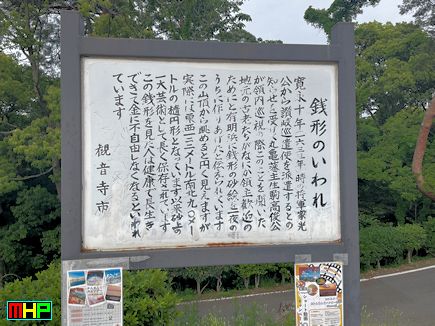 銭形のいわれ
寛永十年(一六三三年)時の将軍家光
公から讃岐巡遣使を派遣するとの
知らせを受けた丸亀藩主生駒高俊公
が領内巡視の際このことを聞いた
地元の古老たちがなにか領主歓迎の
ためにと有明浜に銭形の砂絵を一夜の
うちに作りあげたと伝えられています
この山頂から眺めると円く見えますが
実際には東西一二二メートル南北九〇メー
トルの楕円形となっています以来砂上の
一大芸術として長く保存されています
この銭形を見た人は健康で長生き
できて金に不自由しなくなるといわれ
ています
観音寺市
MHP